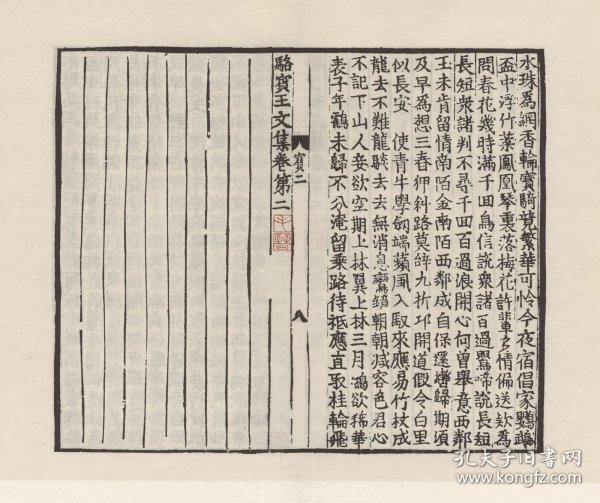 水珠為網香輪寶騎競繁華可怜今夜宿倡家鸚鵡
盃中浮竹葉鳳凰琴裏落梅花許輩多情偏送欵為
問春花幾時滿千回鳥信說衆諸百過鸎啼說長短
長短衆諸判不尋千回百過浪開心何曾舉意西鄰
玉未肯留情南陌金南陌西鄰咸自保還轡歸期須
及早為想三春狎斜路莫辝九折卭開道假令白里
似長安 使青牛學劒端蘋風入馭來應易竹杖成
龍去不難龍驂去去無消息鸞鏡朝朝減容色君心
不記下山人妾欲空期上林翼上林三月鴻欲稀華
表子年鶴未歸不分淹留乗路待秪應直取桂輪飛
寳二
八
駱賓王文集卷第二
孔夫子旧书网